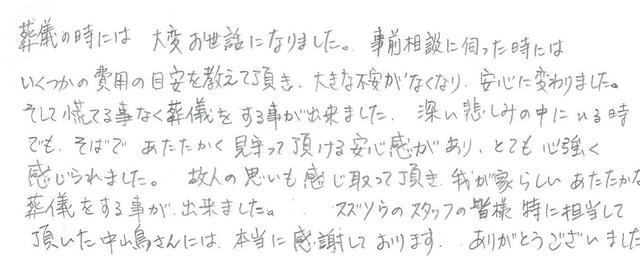 葬儀の時には 大変お世話になりました。 事前相談に伺った時には
いくつかの費用の目安を教えて頂き、大きな不安がなくなり、安心に変わりました。
そして慌てる事なく葬儀をする事が出来ました。 深い悲しみの中にいる時
でも、そばで あたたかく見守って頂ける安心感があり、とても心強く
感じられました。 故人の思いも感じ取って頂き、我が家らしい あたたかな
葬儀をする事が 出来ました。 スズソウのスタッフの皆様 特に担当して
頂いた中山鳥さんには、本当に感謝しております。 ありがとうございました